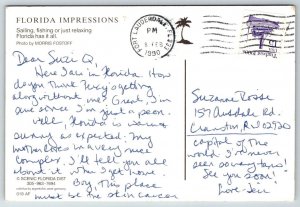 FLORIDA IMPRESSIONS
Sailing, fishing or just relaxing
Florida has it all.
Photo by MORRIS FOSTOFF
FORT LAUDERDALE
PM
5 FEB
1990
Dear Suzi Q,
Here I am in Florida. How
do you think they're getting
along without me? Great, I'm
sure since I'm just a peon.
Well, Florida is warm &
sunny as expected. My
mother lives in a very nice
complex. I'll tell you all
about it when I get home.
Boy, this place
must be the skin cancer
capital of the
world. I've never
seen so many tans!
See you soon!
Love, Jeri
Suzanne Rosse
157 Ausdale Rd.
Cranston, RI 02920
© SCENIC FLORIDA DIST
305-960-7894